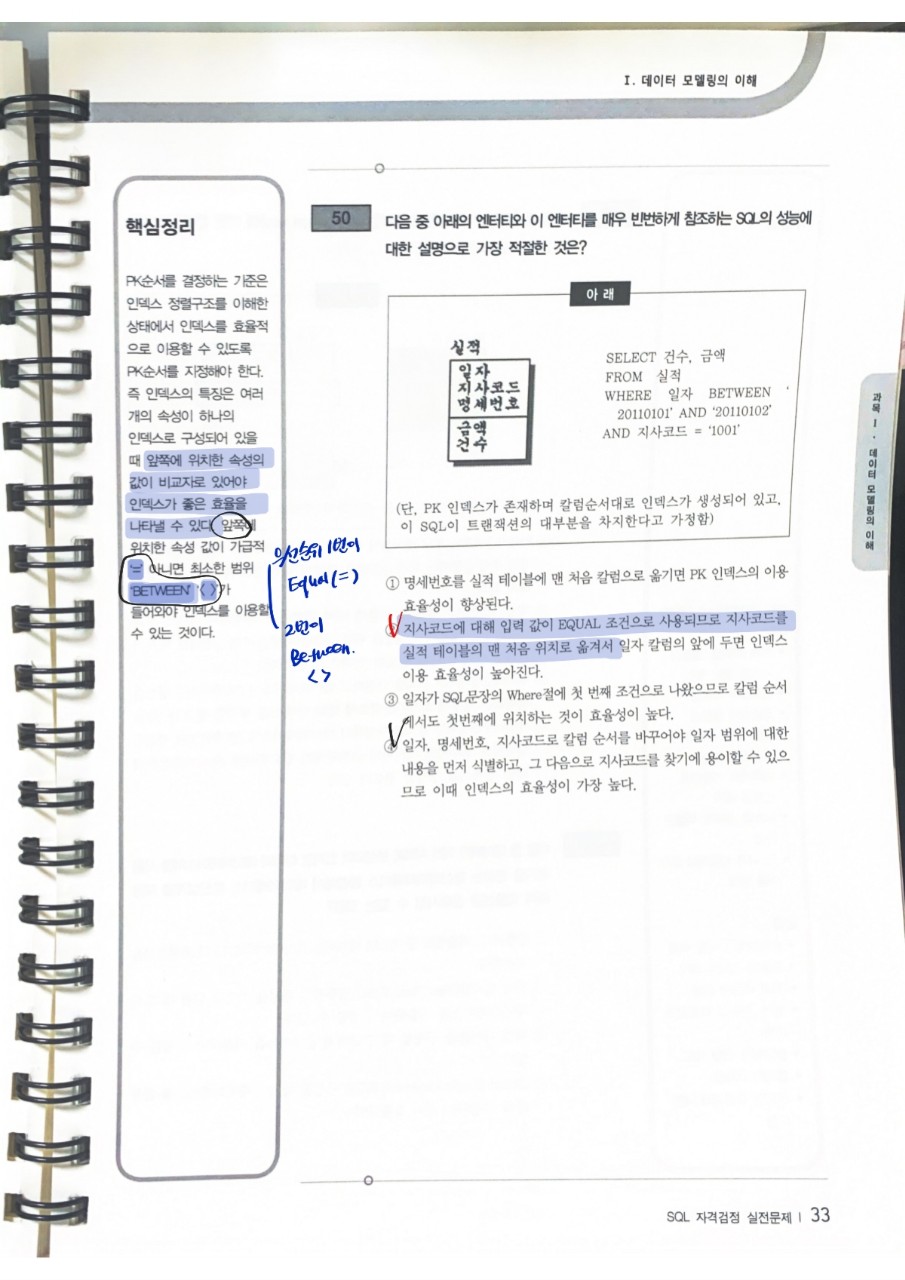 I. 데이터 모델링의 이해
핵심정리
PK순서를 결정하는 기준은
인덱스 정렬구조를 이해한
상태에서 인덱스를 효율적
으로 이용할 수 있도록
PK순서를 지정해야 한다.
즉 인덱스의 특징은 여러
개의 속성이 하나의
인덱스로 구성되어 있을
때 앞쪽에 위치한 속성의
값이 비교자로 있어야
인덱스가 좋은 효율을
나타낼 수 있다. 앞쪽에
위치한 속성 값이 가급적
'=' 아니면 최소한 범위
'BETWEEN' '< >'가
들어와야 인덱스를 이용할
수 있는 것이다.
우선순위 1번이
Equal(=)
2번이
Between.
< >
50
다음 중 아래의 엔터티와 이 엔터티를 매우 빈번하게 참조하는 SQL의 성능에
대한 설명으로 가장 적절한 것은?
아 래
실적
일자
지사코드
명세번호
금액
건수
SELECT 건수, 금액
FROM 실적
WHERE 일자 BETWEEN '
20110101' AND '20110102'
AND 지사코드 = '1001'
(단, PK 인덱스가 존재하며 칼럼순서대로 인덱스가 생성되어 있고,
이 SQL이 트랜잭션의 대부분을 차지한다고 가정함)
① 명세번호를 실적 테이블에 맨 처음 칼럼으로 옮기면 PK 인덱스의 이용
효율성이 향상된다.
② 지사코드에 대해 입력 값이 EQUAL 조건으로 사용되므로 지사코드를
실적 테이블의 맨 처음 위치로 옮겨서 일자 칼럼의 앞에 두면 인덱스
이용 효율성이 높아진다.
③ 일자가 SQL문장의 Where절에 첫 번째 조건으로 나왔으므로 칼럼 순서
에서도 첫번째에 위치하는 것이 효율성이 높다.
④ 일자, 명세번호, 지사코드로 칼럼 순서를 바꾸어야 일자 범위에 대한
내용을 먼저 식별하고, 그 다음으로 지사코드를 찾기에 용이할 수 있으
므로 이때 인덱스의 효율성이 가장 높다.
과목 I · 데이터 모델링의 이해
SQL 자격검정 실전문제 | 33